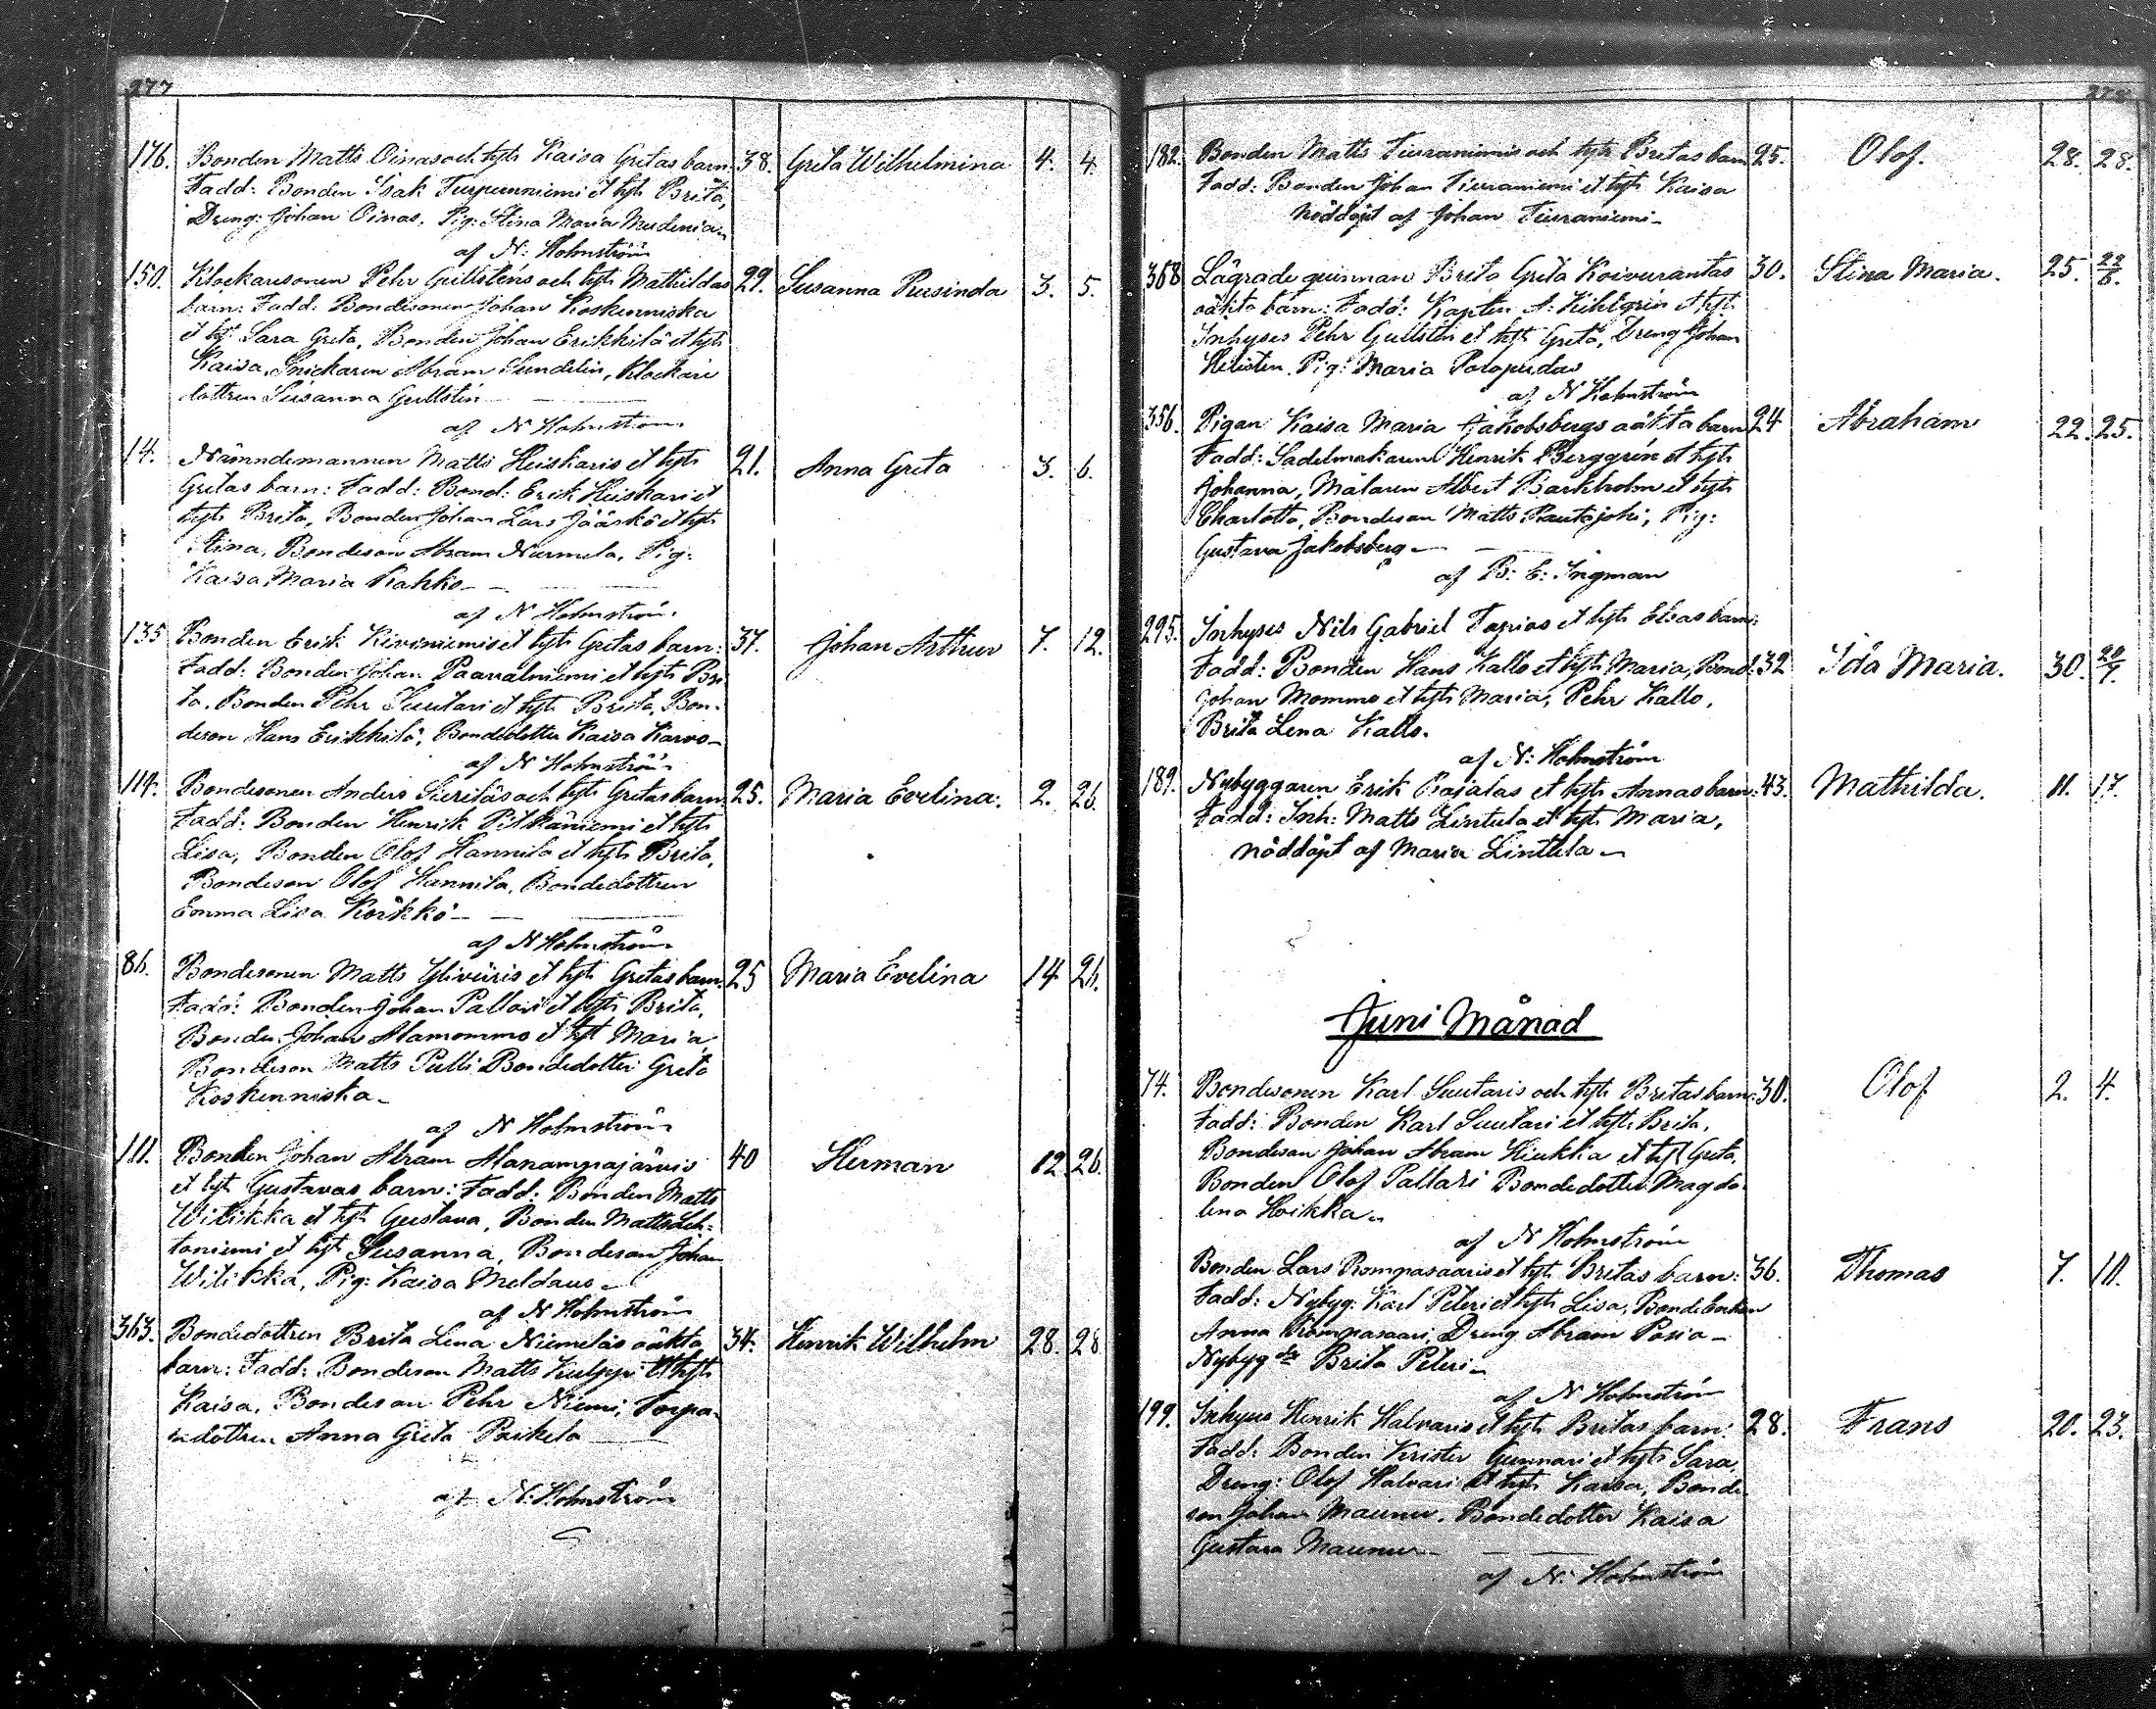 277
176. Bonden Matts Oinas och hyts Kaisa Gretas barn: 38. Greta Wilhelmina 4. 4.
Fadd: Bonden Isak Turpeenniemi et hyts Brita,
Dreng: Johan Oinas, Pig: Stina Maria
af N: Holmström
150. Klockaresonen Pehr Gullsténs och hyts Mathildas 29. Susanna Rusinda 3. 5.
barn: Fadd: Bondesonen Johan Koskenniska
et hyt Sara Greta, Bonden Johan Erikkilä et hyts
Kaisa, Snickaren Abram Sundelin, Klockare
dottren Susanna Gullstén
af N Holmström
14. Nämndemannen Matts Heiskaris et hyts 21. Anna Greta 3. 6.
Gretas barn: Fadd: Bond: Erik Heiskari et
hyts Brita, Bonden Johan Lars Jääskö et hyts
Stina, Bondeson Abram Nurmela, Pig:
Kaisa Maria Kahko
af N Holmström.
135 Bonden Erik Kiviniemis et hyts Gretas barn: 37. Johan Arthur 7. 12.
Fadd: Bonden Johan Paavalniemi et hyts Bri
ta, Bonden Pehr Suutari et hyts Brita, Bon-
deson Hans Erikkilä, Bondedotter Kaisa Karvo
af N Holmström
114. Bondesonen Anders Sierilas och hyts Gretas barn 25. Maria Evelina. 2. 26
Fadd: Bonden Henrik Pitkäniemi et hyts
Lisa, Bonden Olof Hannila et hyts Brita,
Bondeson Olof Hannila, Bondedottren
Emma Lisa Korkko
af N Holmström
86. Bondesonen Matts Yliviiris et hyts Gretas barn. 25 Maria Evelina 14 26.
Fadd: Bonden Johan Pallari et hyts Brita,
Bonden Johan Alamommo et hyt Maria
Bondeson Matts Pulli Bondedotter Greta
Koskenniska
af N Holmström
111. Bonden Johan Abram Alanampajärvis 40 Herman 12 26
et hyts Gustavas barn: Fadd: Bonden Matts
Witikka et hyts Gustava, Bonden Matts Leh-
toniemi et hyt Susanna, Bondeson Johan
Witikka, Pig: Kaisa Meldaus
af N Holmström
363. Bondedottren Brita Lena Niemeläs oäkta 34. Henrik Wilhelm 28. 28
barn: Fadd: Bondeson Matts Kulppi et hyts
Kaisa, Bondeson Pehr Niemi, Torpa-
redottren Anna Greta Poikela
af N: Holmström
278
182. Bonden Matts Tiuraniemis och hyts Britas barn 25. Olof. 28. 28.
Fadd: Bonden Johan Tiuraniemi et hyts Kaisa
Nöddöpt af Johan Tiuraniemi
368 Lägrade quinnan Brita Greta Koivurantas 30. Stina Maria. 25. 22/6.
oäkta barn: Fadd: Kapten A: Kihlgrén et hyt
Inhyses Pehr Gullstén et hyts Greta, Dreng Johan
Helisten, Pig: Maria Palopudas
af N Holmström
356. Pigan Kaisa Maria Jakobsbergs oäkta barn 24 Abraham 22. 25.
Fadd: Sadelmakaren Henrik Berggrén et hyts
Johanna, Målaren Albert Barkholm et hyts
Charlotta, Bondeson Matts Rautajoki, Pig:
Gustava Jakobsberg
af B: E: Ingman
295. Inhyses Nils Gabriel Tapios et hyts Elsas barn:
Fadd: Bonden Hans Kallo et hyts Maria, Bond: 32 Ida Maria. 30. 20/7.
Johan Mommo et hyts Maria, Pehr Kallo,
Brita Lena Kallo.
af N: Holmström
189. Nybyggaren Erik Rajalas et hyts Annas barn: 43. Mathilda. 11. 17.
Fadd: Inh: Matts Lintula et hyts Maria,
Nöddöpt af Maria Lintula
Juni Månad
74. Bondesonen Karl Suutaris och hyts Britas barn: 30. Olof 2. 4.
Fadd: Bonden Karl Suutari et hyts Brita,
Bondeson Johan Abram Hiukka et hyt Greta,
Bonden Olof Pallari Bondedotter Magda-
lena Hoikka
af N Holmström
Bonden Lars Rompasaaris et hyts Britas barn: 36. Thomas 7. 10.
Fadd: Nybyg: Karl Peteri et hyts Lisa, Bondeenkan
Anna Rompasaari, Dreng Abram Posia
Nybyg dr Brita Peteri
af N Holmström
199. Inhyses Henrik Halvaris et hyts Britas barn: 28. Frans 20. 23.
Fadd: Bonden Krister Gunnari et hyts Sara,
Dreng: Olof Halvari et hyts Kaisa, Bonde-
son Johan Maunu, Bondedotter Kaisa
Gustava Maunu
af N: Holmström